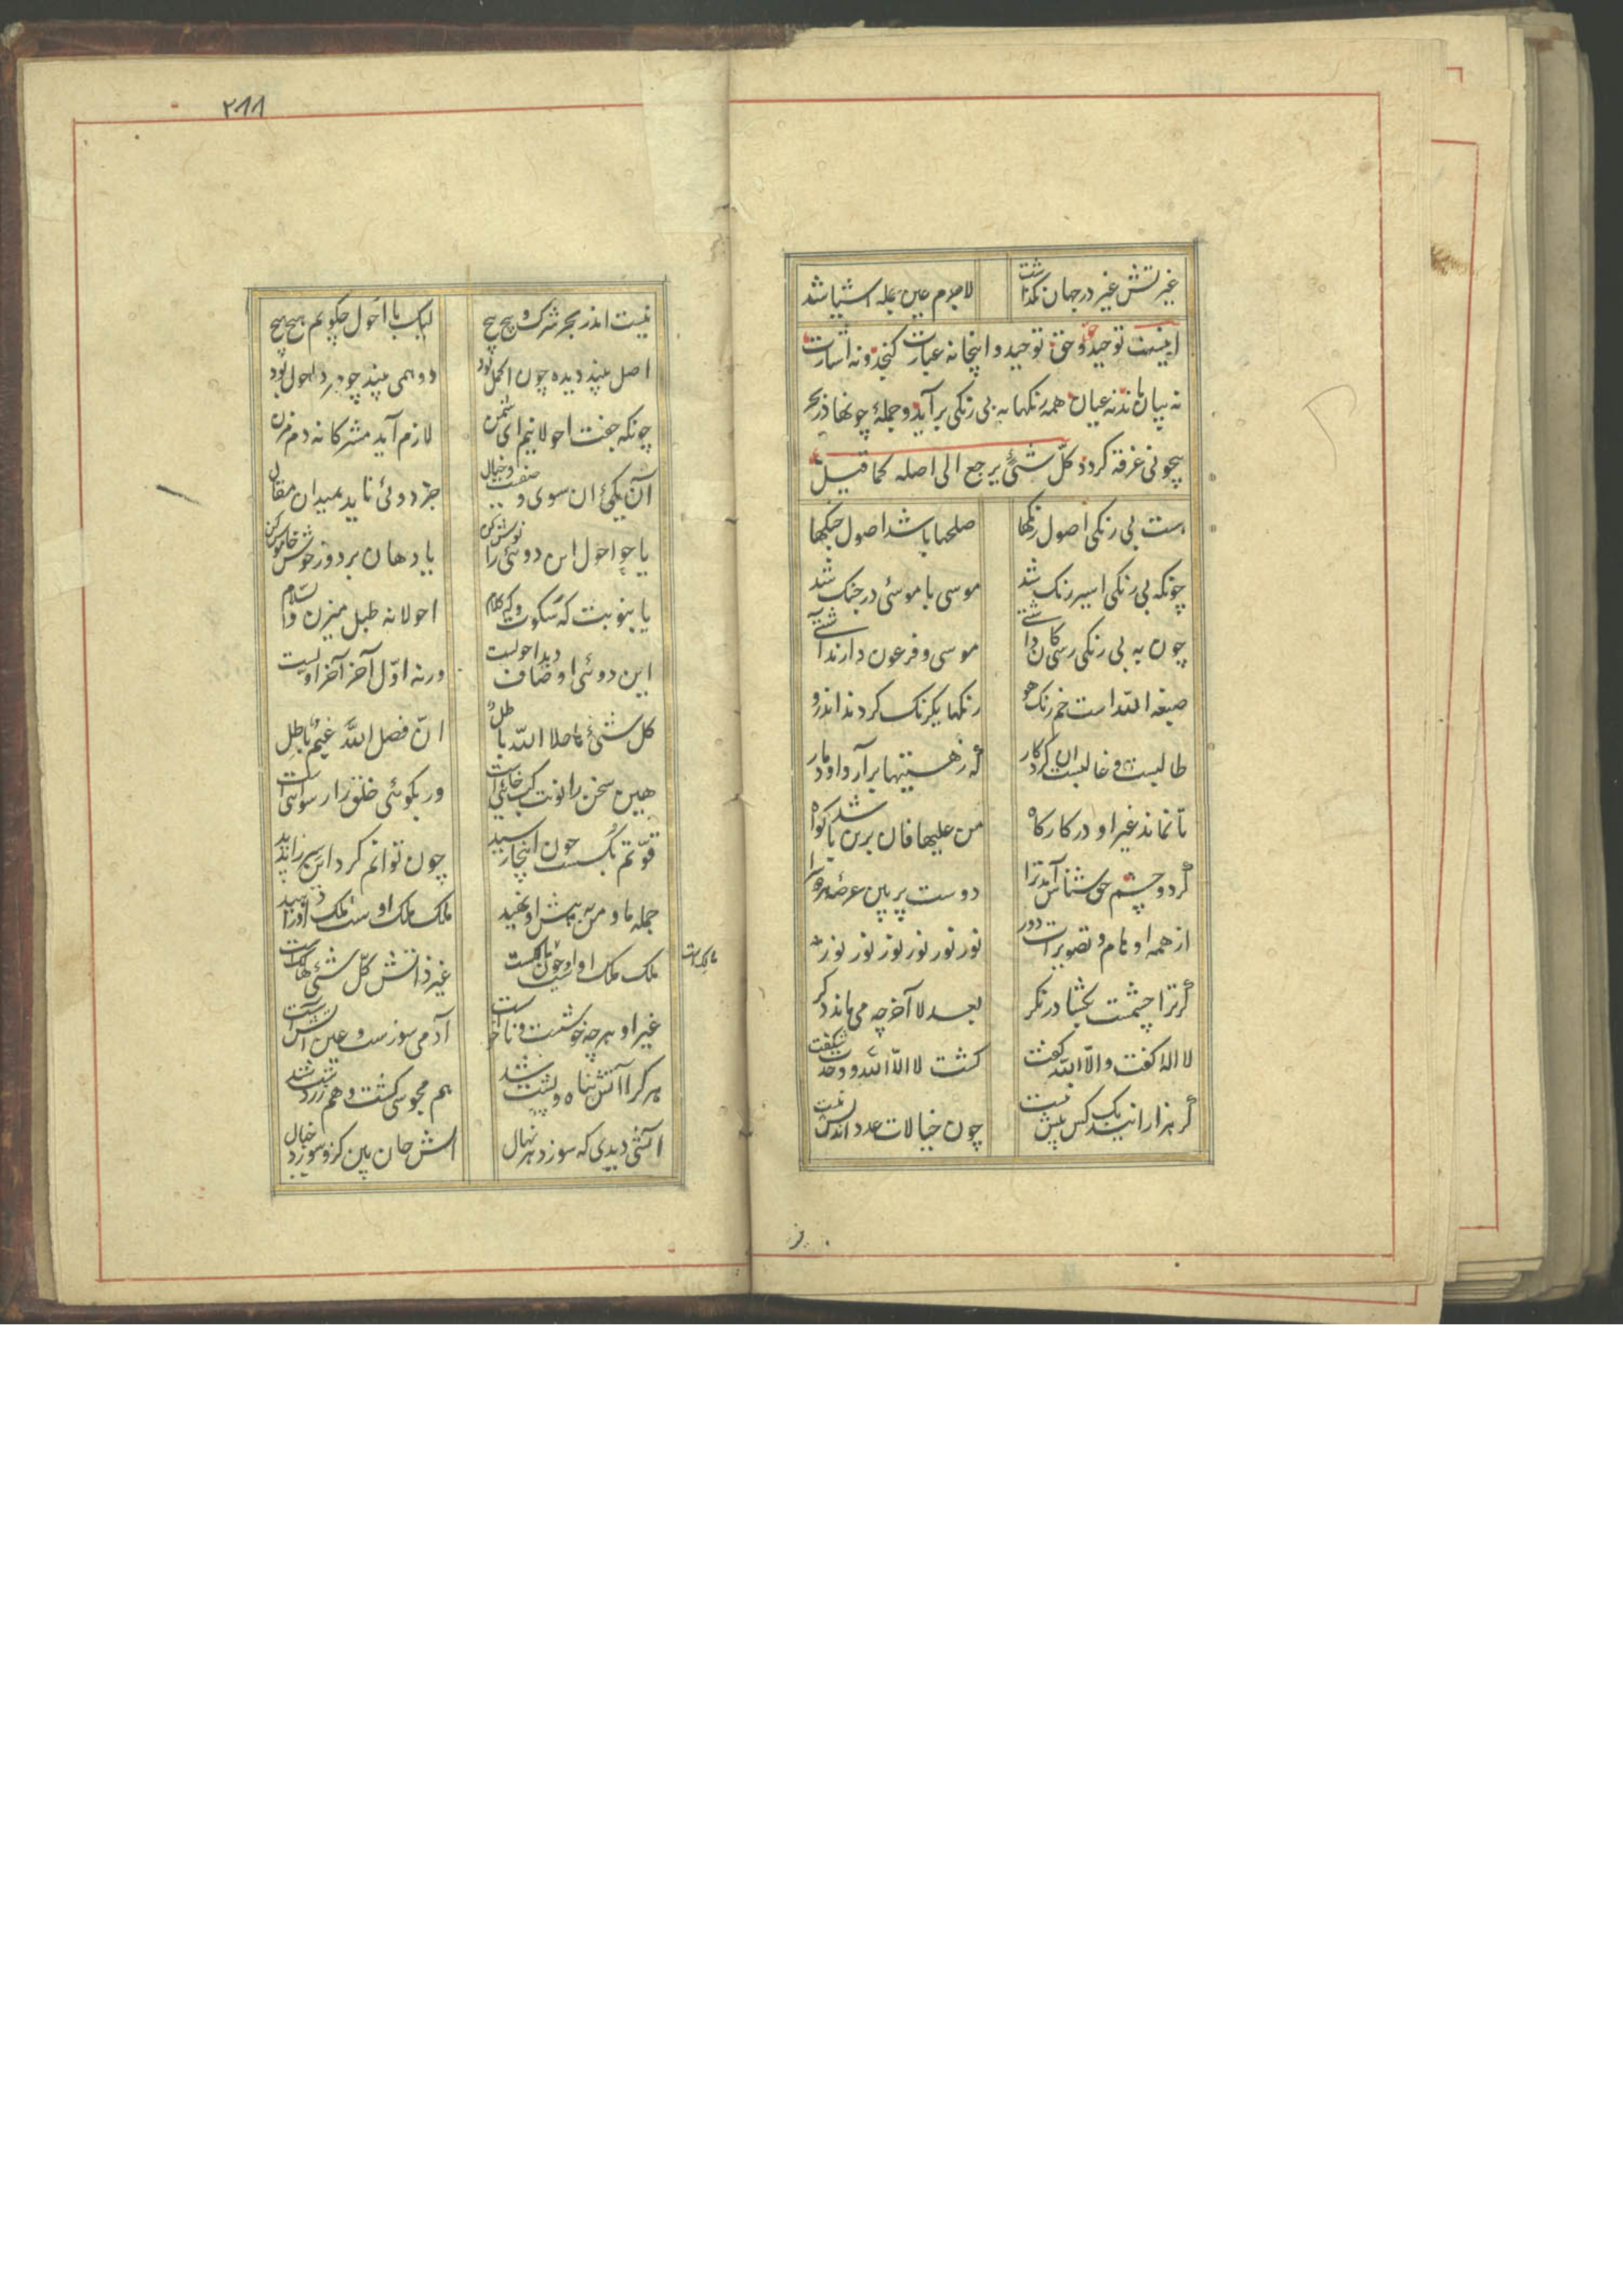 غیرتش غیر در جهان نگذاشت لاجرم عین جمله اشیا شد
اینست توحید و حق توحید و اینجا نه عبارت گنجد و نه اشارت
نه بیان ماند نه عیان همه رنکها به بی رنکی برآید و جملهٔ چونها در بحر
بیچونی غرقه کردد کلّ شئ یرجع الی اصله کما قیل
هست بی رنکی اصول رنکها صلحها باشد اصول جنکها
چونکه بی رنکی اسیر رنک شد موسی با موسئ در جنک شد
چون به بی رنکی رسی کان داشتی موسی و فرعون دارند آشتی
صبغه الله است خم رنک هو رنکها یکرنک کردند اندرو
طالبست و غالبست ان کردکار که ز هستیها برآرد او دمار
تا نماند غیر او در کارکاه من علیها فان برین باشد کواه
کر دو چشم حق شناس آمد ترا دوست پر بین عرصهٔ هر دو سرا
از همه اوهام و تصویرات دور نور نور نور نور نور نور
کر ترا چشمیست بکشا در نکر بعد لا آخر چه می ماند دکر
لا اله کفت و الّا الله کفت کشت لا الّا الله و وحدت شکفت
کر هزارانند یک کس بیش نیست چون خیالات عدد اندیش نیست
۲۸۸
نیست اندر بحر شرک و پیچ پیچ لیک با احول چکویم هیچ هیچ
اصل بیند دیده چون اکمل بود دو همی بیند چو مرد احول بود
چونکه جفت احولانیم ای شمن لازم آید مشرکانه دم زدن
آن یکئ ان سوی وصفست و خیال جز دوئی ناید بمیدان مقال
یا چو احول این دوئی را نوش کن یا دهان بر دوز خوش خاموش کن
یا بنوبت که سکوت و که کلام احولانه طبل میزن والسلام
این دوئی اوصاف دید احولست ورنه اوّل آخر آخر اولست
کل شئ ما خلا الله باطل انّ فضل الله غیم هاطل
هین سخن را نوبت لب خائی است ور بکوئی خلق را رسوائی است
قوّتم بکسست چون اینجا رسید چون توانم کرد این سر را پدید
جمله ما و من به پیش او نهید ملک ملک اوست ملک او را دهید
ملک ملک اوست او چون مالکست غیر ذاتش کلّ شئ هالکست
مالکست
غیر او هرچه خوشست و ناخوشست آدمی سوزست و عین آتشست
هر کرا آتش پناه و پشت شد هم مجوسی کشت و هم زردشت شد
آتشی دیدی که سوزد هر نهال آتش جان بین کزو سوزد خیال